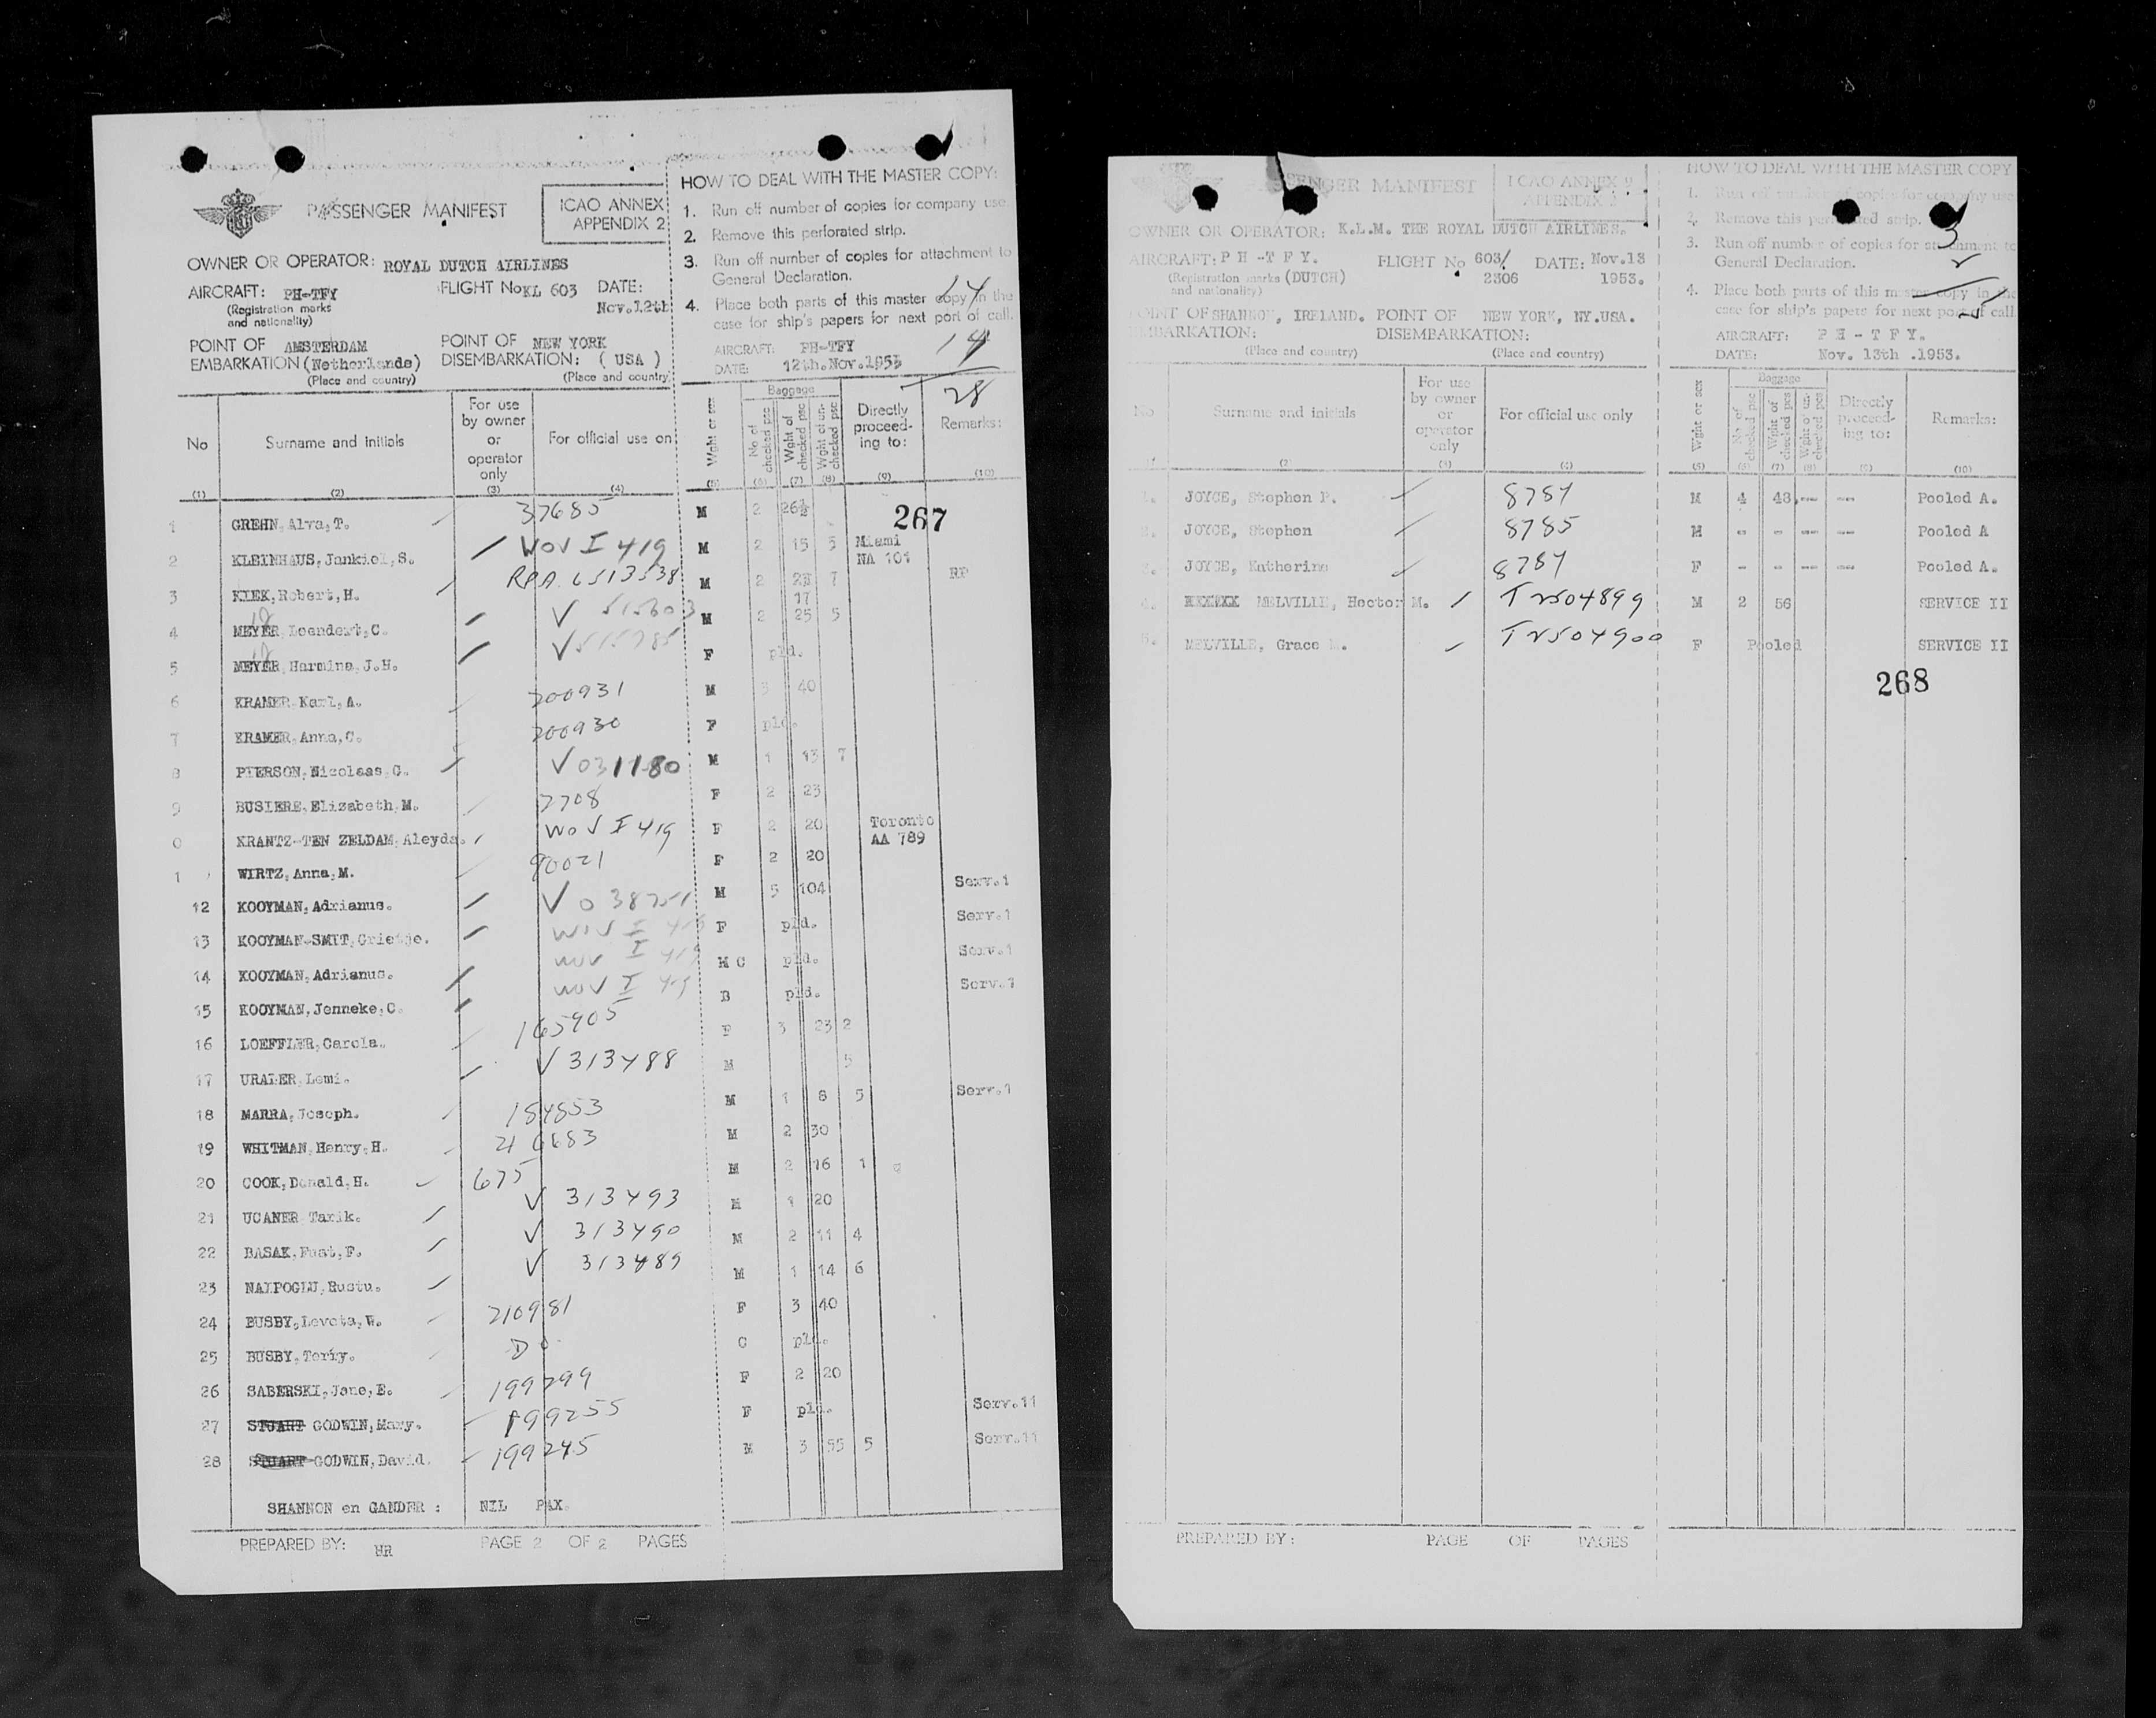 PASSENGER MANIFEST
ICAO ANNEX
APPENDIX 2
OWNER OR OPERATOR: ROYAL DUTCH AIRLINES
AIRCRAFT: PH-TFY FLIGHT No KL 603 DATE:
(Registration marks
and nationality)
Nov.12th
POINT OF AMSTERDAM POINT OF NEW YORK
EMBARKATION (Netherlands) DISEMBARKATION: ( USA )
(Place and country) (Place and country)
HOW TO DEAL WITH THE MASTER COPY:
1. Run off number of copies for company use.
2. Remove this perforated strip.
3. Run off number of copies for attachment to
General Declaration.
4. Place both parts of this master copy in the
case for ship's papers for next port of call.
14
AIRCRAFT: PH-TFY
DATE: 12th.Nov.1953
14
28
No Surname and initials For use by owner or operator only For official use on Wght or sex Baggage No of checked psc Wght of checked psc Wght of un-checked psc Directly proceed-ing to: Remarks:
(1) (2) (3) (4) (5) (6) (7) (8) (9) (10)
267
1 GREHN, Alva, T. 37685 M 2 26½
2 KLEINHAUS, Jankiel, S. WOV I 419 M 2 15 5 Miami NA 101
3 KIEK, Robert, H. M 2 7 RP
17
4 MEYER, Leendert, C. M 2 25 5
5 MEYER, Harmina, J.H. F pld.
6 KRAMER Karl, A. 200931 M 40
7 KRAMER, Anna, C. 200930 F pld.
8 PIERSON, Nicolaas, G. V 031180 M 1 13 7
9 BUSIERE, Elizabeth, M. 7708 F 2 23
0 KRANTZ-TEN ZELDAM, Aleyda. WOV I 419 F 2 20 Toronto AA 789
1 WIRTZ, Anna, M. 90021 F 2 20
12 KOOYMAN, Adrianus. M 5 104 Serv.1
13 KOOYMAN-SMIT, Grietje. WOV I 419 F pld. Serv.1
14 KOOYMAN, Adrianus. WOV I 419 M C pld. Serv.1
15 KOOYMAN, Jenneke, C. WOV I 419 B pld. Serv.1
16 LOEFFLER, Carola. 165905 F 3 23 2
17 URALER, Lemi. V 313488 M 5
18 MARRA, Joseph. 184853 M 1 8 5 Serv.1
19 WHITMAN, Henry, H. M 2 30
20 COOK, Donald, H. 675 M 2 16 1
21 UCANER Tarik. V 313493 M 1 20
22 BASAK, Fuat, F. V 313490 M 2 11 4
23 NALPOGLU, Rustu. V 313489 M 1 14 6
24 BUSBY, Leveta, W. 210981 F 3 40
25 BUSBY, Terry. DO C pld.
26 SABERSKI, Jane, E. 199799 F 2 20
27 STUART GODWIN, Mary. 199255 F pld. Serv.11
28 STUART-GODWIN, David. 199245 M 3 55 5 Serv.11
SHANNON en GANDER : NIL PAX.
PREPARED BY: HR PAGE 2 OF 2 PAGES
PASSENGER MANIFEST
ICAO ANNEX 9
APPENDIX 2
OWNER OR OPERATOR: K.L.M. THE ROYAL DUTCH AIRLINES.
AIRCRAFT: P H -T F Y. FLIGHT No 603/ DATE: Nov.13
(Registration marks (DUTCH) 2306 1953.
and nationality)
POINT OF SHANNON, IRELAND. POINT OF NEW YORK, NY.USA.
EMBARKATION: DISEMBARKATION:
(Place and country) (Place and country)
HOW TO DEAL WITH THE MASTER COPY
1. Run off number of copies for company use
2. Remove this perforated strip.
3. Run off number of copies for attachment to
General Declaration.
4. Place both parts of this master copy in the
case for ship's papers for next port of call.
3
2
5
AIRCRAFT: P H - T F Y.
DATE: Nov. 13th .1953.
No Surname and initials For use by owner or operator only For official use only Wght or sex Baggage No of checked psc Wght of checked pcs Wght o un-checked pcs Directly proceed-ing to: Remarks:
(2) (3) (4) (5) (6) (7) (8) (9) (10)
1. JOYCE, Stephen P. 8784 M 4 43 --- --- Pooled A.
2. JOYCE, Stephen 8785 M - - --- --- Pooled A
3. JOYCE, Katherine 8784 F - - --- --- Pooled A.
4. MELVILLE, Hector M. T2504899 M 2 56 SERVICE II
5. MELVILLE, Grace M. T2504900 F Pooled SERVICE II
268
PREPARED BY: PAGE OF PAGES